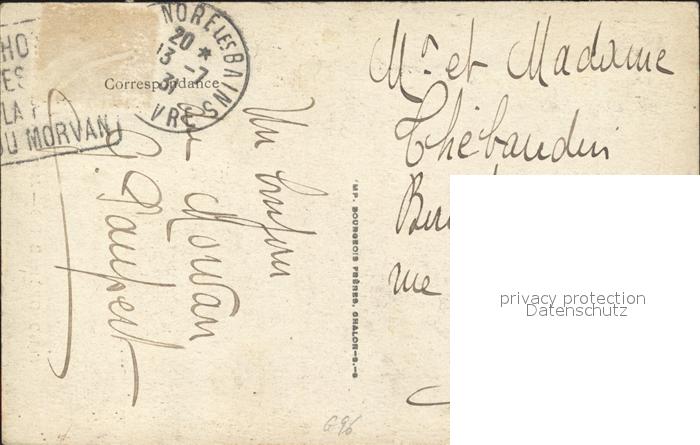 HO
ES
LA
DU MORVAN
NORE LES BAINS
20 *
13 -7
31
VRE
Correspondance
Un bonjour
du Morvan
G. Paupert
IMP. BOURGEOIS FRÈRES, CHALON-S.-S
Mr et Madame
Thébaudin
rue
G96
privacy protection
Datenschutz